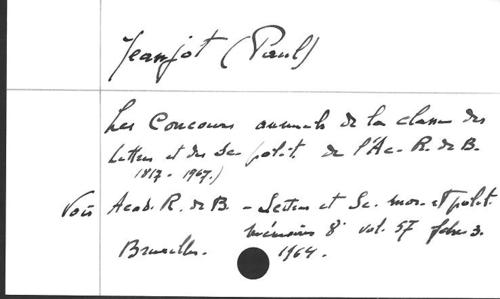 Jeanjot (Paul)
Les Concours annuels de la classe des
Lettres et des Sc. polit. de l'Ac. R. de B.
1817-1967.)
Voir Acad. R. de B. - Lettres et Sc. mor. et polit.
mémoires 8° vol. 57 fasc. 3.
Bruxelles. 1964.